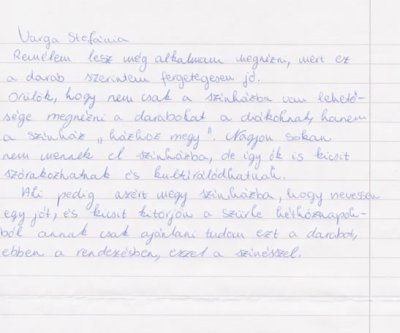 Varga Stefánia
Remélem lesz még alkalmam megnézni, mert ez
a darab szerintem fergetegesen jó.
Örülök, hogy nem csak a színházba van lehető-
sége megnézni a darabokat a diákoknak, hanem
a színház „házhoz megy". Nagyon sokan
nem mennek el színházba, de így ők is kicsit
szórakozhatnak és kultúrálódhatnak.
Aki pedig azért megy színházba, hogy nevessen
egy jót, és kicsit kitörjön a szürke hétköznapok-
ból annak csak ajánlani tudom ezt a darabot,
ebben a rendezésben, ezzel a színésszel.